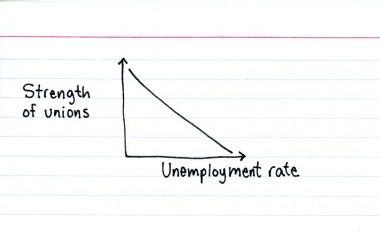 Strength
of unions
Unemployment rate